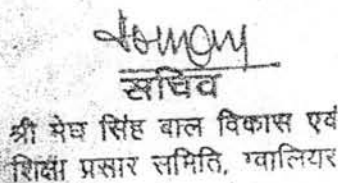 सचिव
श्री मेघ सिंह बाल विकास एवं
शिक्षा प्रसार समिति, ग्वालियर